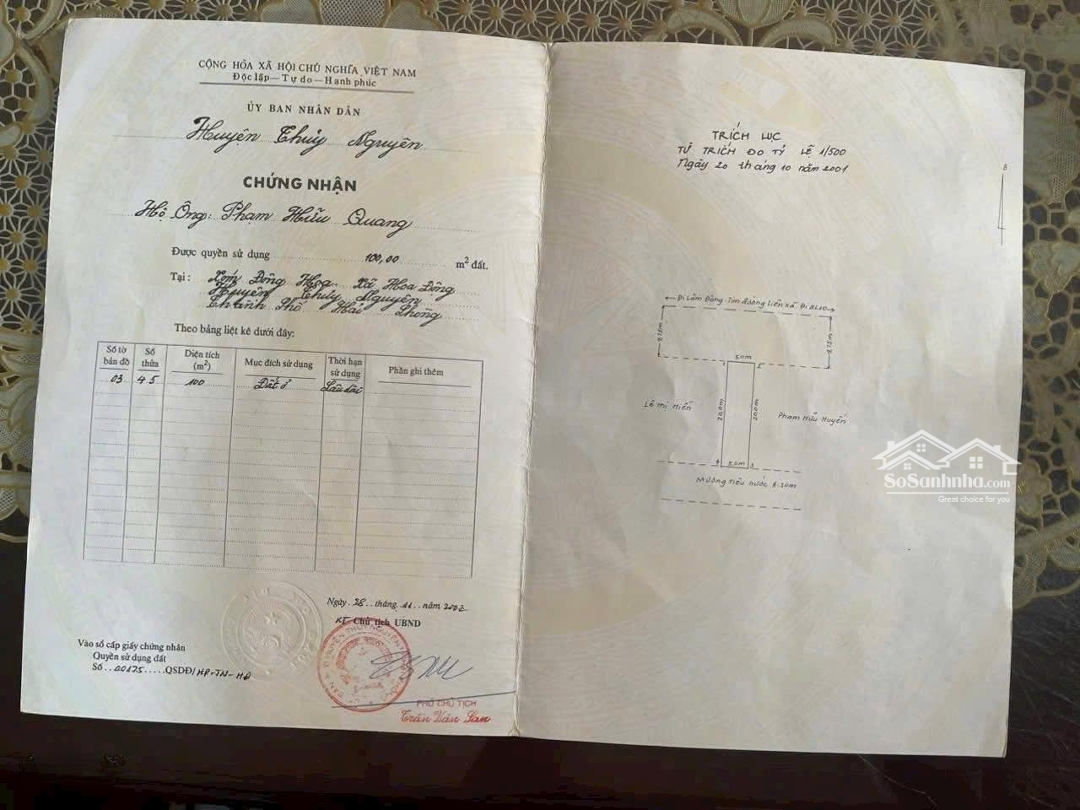 CỘNG HÒA XÃ HỘI CHỦ NGHĨA VIỆT NAM
Độc lập — Tự do — Hạnh phúc
ỦY BAN NHÂN DÂN
Huyện Thủy Nguyên
CHỨNG NHẬN
Hộ Ông: Phạm Hữu Quang
Được quyền sử dụng 100,00 m² đất.
Tại : Xóm Đông Hoa Xã Hoa Động
Huyện Thủy Nguyên
Thành Phố Hải Phòng
Theo bảng liệt kê dưới đây:
Số tờ bản đồ Số thửa Diện tích (m²) Mục đích sử dụng Thời hạn sử dụng Phần ghi thêm
03 45 100 Đất ở Lâu dài
Ngày 28 tháng 11 năm 2002
KT Chủ tịch UBND
PHÓ CHỦ TỊCH
Trần Văn San
Vào sổ cấp giấy chứng nhận
Quyền sử dụng đất
Số 00175 QSDĐ/HP-TN-HĐ
TRÍCH LỤC
TỪ TRÍCH ĐO TỶ LỆ 1/500
Ngày 20 tháng 10 năm 2001
B
Đi Lâm Động Tim đường liên xã Đi QL10
5.0m
1 2
20.0m 20.0m
Lê Thị Miến
Phạm Hữu Huyến
4 5.0m 3
Mương tiêu nước
SoSanhnha.com
Great choice for you